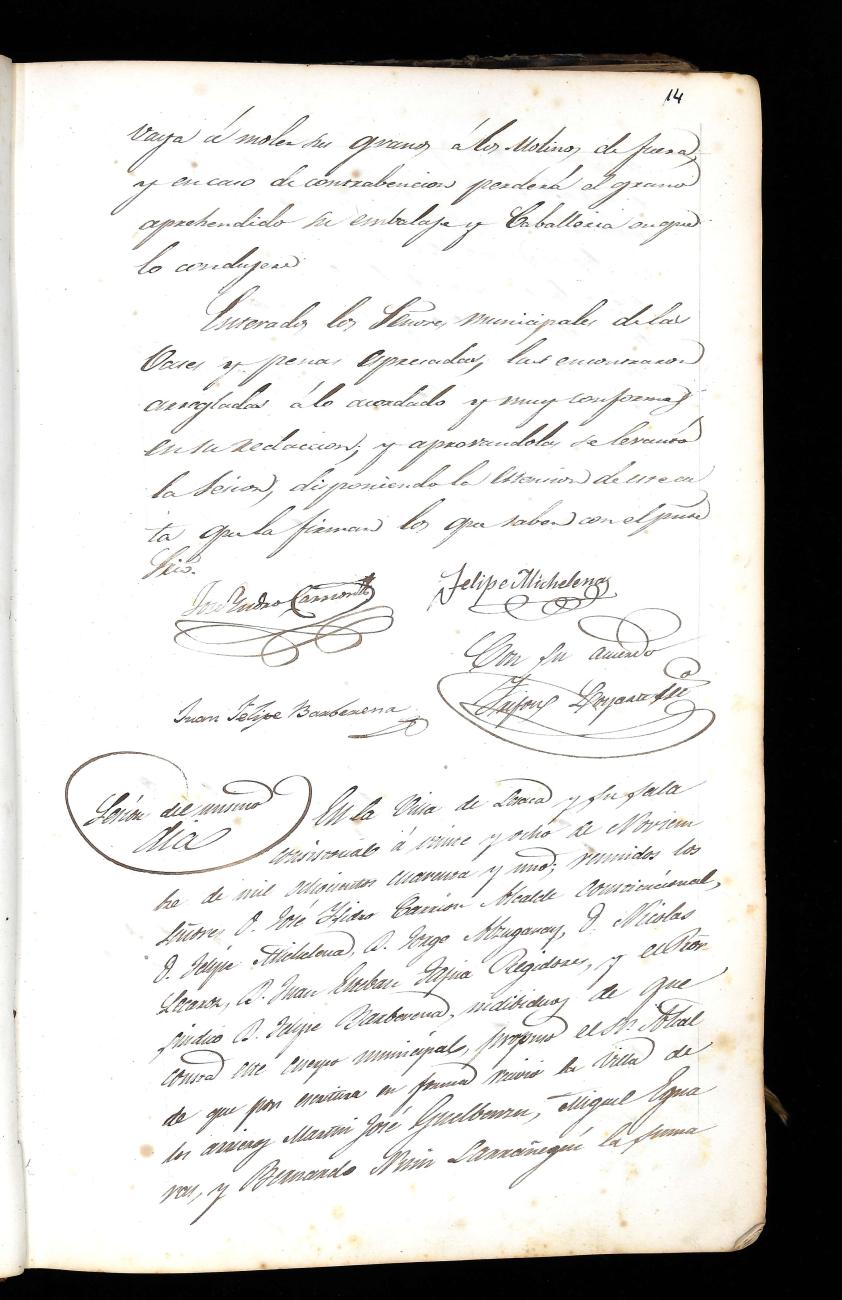 14
vaya á moler su grano á los Molinos de fuera,
y en caso de contrabencion perderá el grano
aprehendido su embalaje y Caballeria en que
lo condujere
Enterados los Señores municipales de las
Vases y penas espresadas, las encontraron
arregladas á lo acordado y muy conformes
en su redaccion; y aprovandolas se levantó
la Sesion, disponiendo la estension de este ac
ta que la firman los que saben con el prste
Srio.
José Ysidro Carrion
Felipe Michelena
Con su acuerdo
Juan Felipe Barberena
Sesion del mismo
dia
En la Villa de y su sala
consistorial á veinte y ocho de Noviem
bre de mil ochocientos cuarenta y uno; reunidos los
Señores D. José Ysidro Carrion Alcalde Constitucional,
D. Felipe Michelena, D. Jorge Alzugaray, D. Nicolas
D. Juan Esteban Regidores, y el Pror
Sindico D. Felipe Barberena, individuos de que
consta este cuerpo municipal, propuso el Sr. Alcal
de que por escritura en forma recivió la Villa de
los arrieros Martin José Guelbenzu, Miguel Egua
ras, y Bernardo la suma